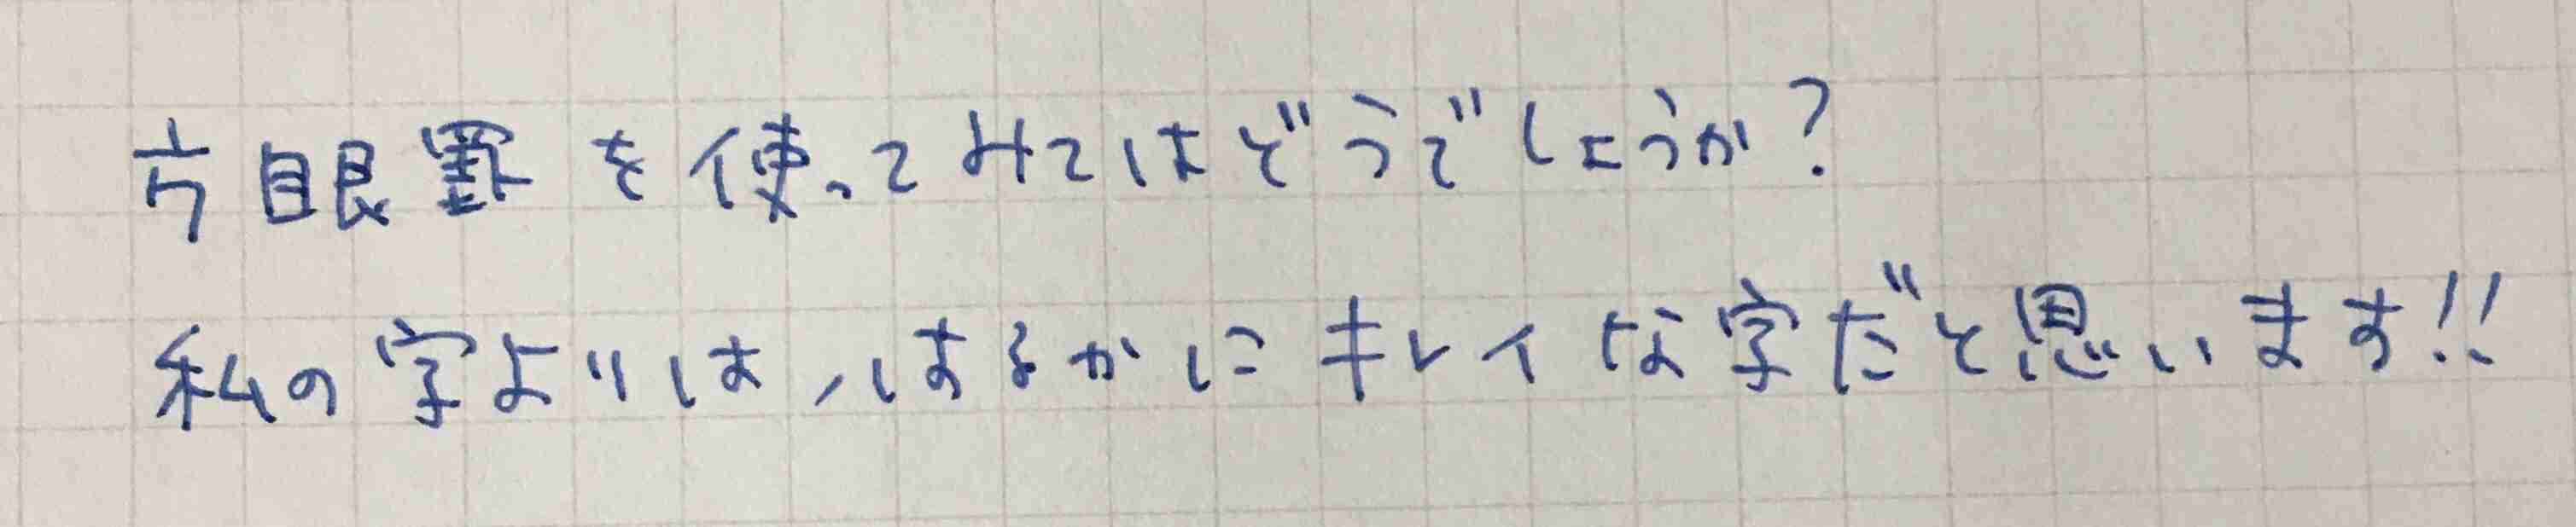 方眼罫を使ってみてはどうでしょうか?
私の字よりは、はるかにキレイな字だと思います!!